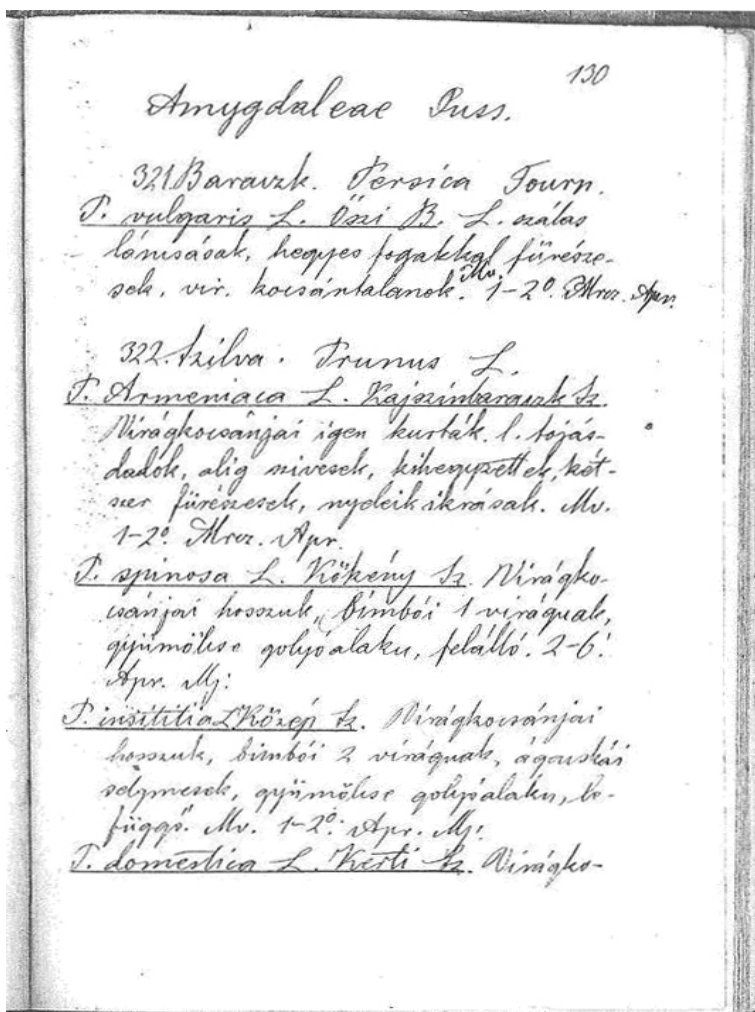 130
Amygdaleae Juss.
321 Baraczk. Persica Tourn.
P. vulgaris L. Őszi B. L. szálas
láncsásak, hegyes fogakkal fürésze-
sek, vir. kocsántalanok. Mv. 1-2º. Mrcz. Apr.
322. Szilva. Prunus L.
P. Armeniaca L. Kajszinbaraczk Sz.
Virágkocsánjai igen kurták. l. tojás-
dadok, alig szivesek, kihegyzettek, két-
szer fürészesek, nyeleik ikrásak. Mv.
1-2º. Mrcz. Apr.
P. spinosa L. Kökény Sz. Virágko-
csánjai hosszuk, bimbói 1 viráguak,
gyümölcse golyóalaku, felálló. 2-6!
Apr. Mj:
P. insititia L Közép Sz. Virágkocsánjai
hosszuk, bimbói 2 viráguak, ágacskái
selymesek, gyümölcse golyóalaku, le-
függő. Mv. 1-2º: Apr. Mj:
P. domestica L. Kerti Sz. Virágko-